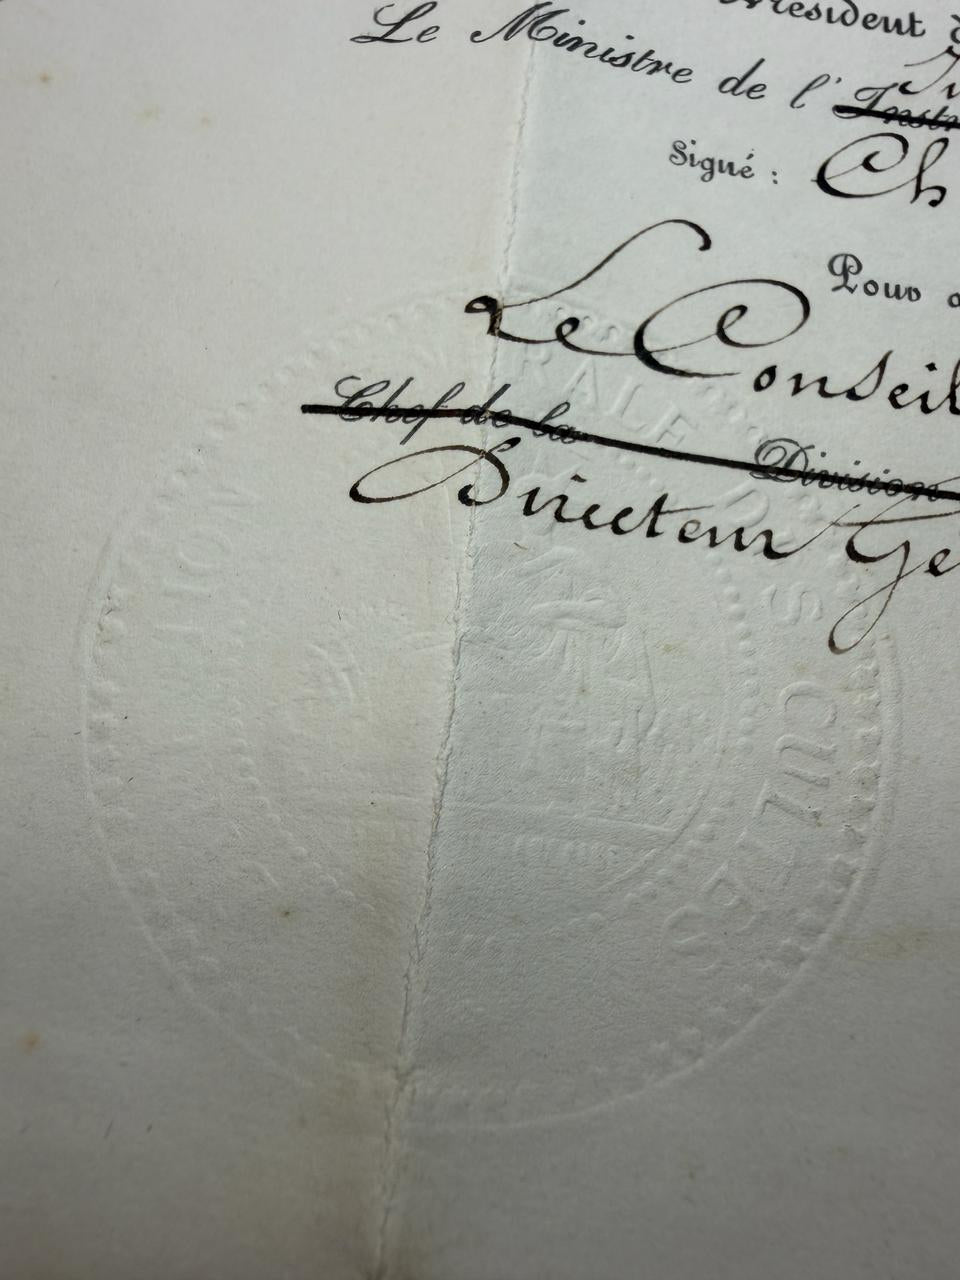 Président d
Le Ministre de l'Instr
Signé : Ch
Pour
Le Conseil
Chef de la Division
Directeur Gé
RALE DES CULTES